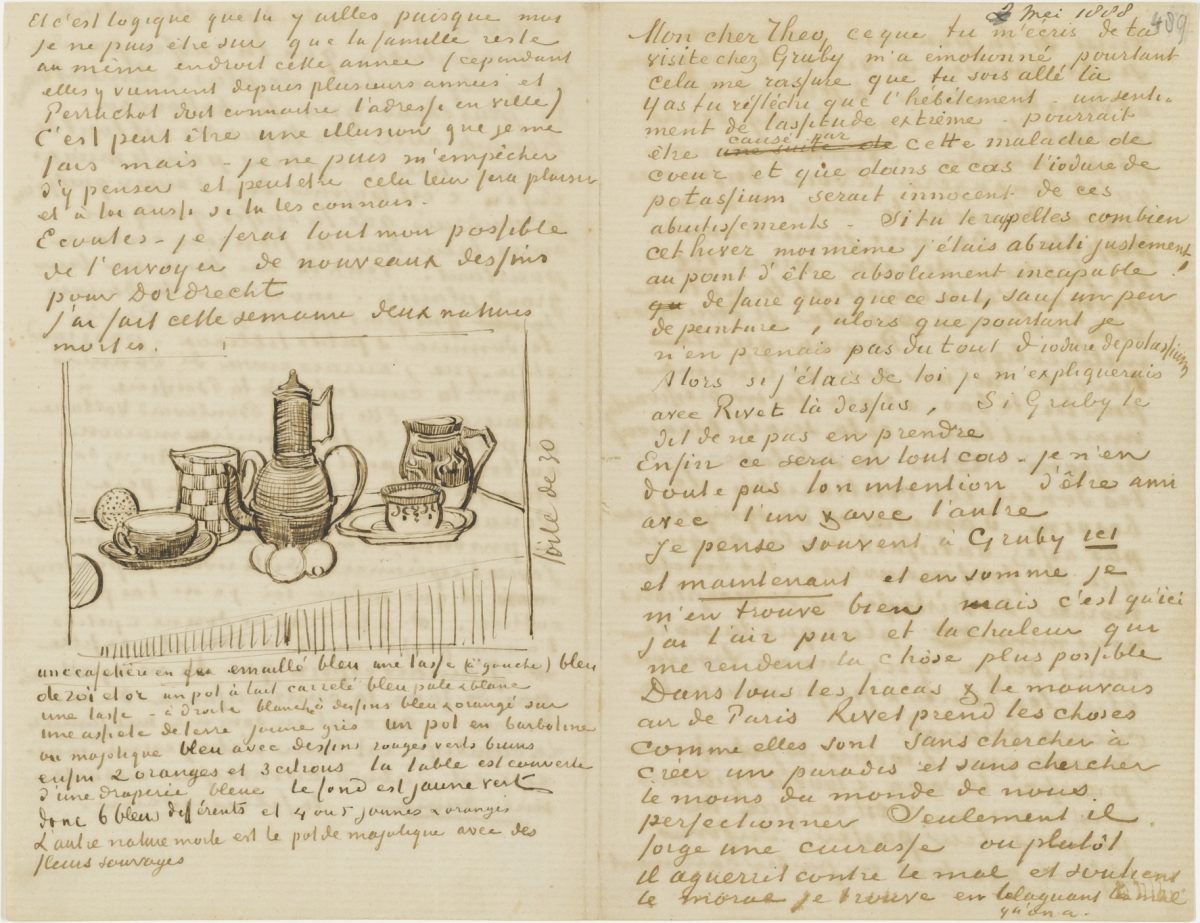 Et c'est logique que tu y ailles puisque moi
je ne puis être sur que la famille reste
au même endroit cette année (cependant
elles y viennent depuis plusieurs années et
Perruchot doit connaitre l'adresse en ville)
C'est peut être une illusion que je me
fais mais – je ne puis m'empêcher
d'y penser et peutetre cela leur fera plaisir
et à toi aussi si tu les connais.
Ecoutes – je ferai tout mon possible
de t'envoyer de nouveaux dessins
pour Dordrecht
J'ai fait cette semaine deux natures
mortes.
toile de 30
une cafetière en fer emaillé bleu une tasse (à gauche) bleu
de roi et or un pot à lait carrelé bleu pale & blanc
une tasse – à droite blanche à dessins bleu & orangé sur
une assiete de terre jaune gris un pot en barbotine
ou majolique bleu avec dessins rouges verts bruns
enfin 2 oranges et 3 citrons la table est couverte
d'une draperie bleue le fond est jaune vert
donc 6 bleus différents et 4 ou 5 jaunes & oranges
L'autre nature morte est le pot de majolique avec des
fleurs sauvages
2 Mei 1888
489
Mon cher Theo, ce que tu m'écris de ta
visite chez Gruby m'a émotionné pourtant
cela me rassure que tu sois allé là
Y as tu réfléchi que l'hébêtement – un senti-
ment de lassitude extrême – pourrait
être une suite de causé par cette maladie de
coeur et que dans ce cas l'iodure de
potassium serait innocent de ces
abrutissements – Si tu te rapelles combien
cet hiver moi même j'étais abruti justement
au point d'être absolument incapable !
qu de faire quoi que ce soit, sauf un peu
de peinture, alors que pourtant je
n'en prenais pas du tout d'iodure de potassium
Alors si j'étais de toi je m'expliquerais
avec Rivet là dessus, Si Gruby te
dit de ne pas en prendre
Enfin ce sera en tout cas – je n'en
doute pas ton intention d'être ami
avec l'un & avec l'autre
Je pense souvent à Gruby ici
et maintenant et en somme je
m'en trouve bien mais c'est qu'ici
j'ai l'air pur et la chaleur qui
me rendent la chôse plus possible
Dans tous les tracas & le mauvais
air de Paris Rivet prend les choses
comme elles sont sans chercher à
créer un paradis et sans chercher
le moins du monde de nous
perfectionner Seulement il
forge une cuirasse ou plutôt
il aguerrit contre le mal et soutient
le moral je trouve en blaguant le mal
qu'on a.